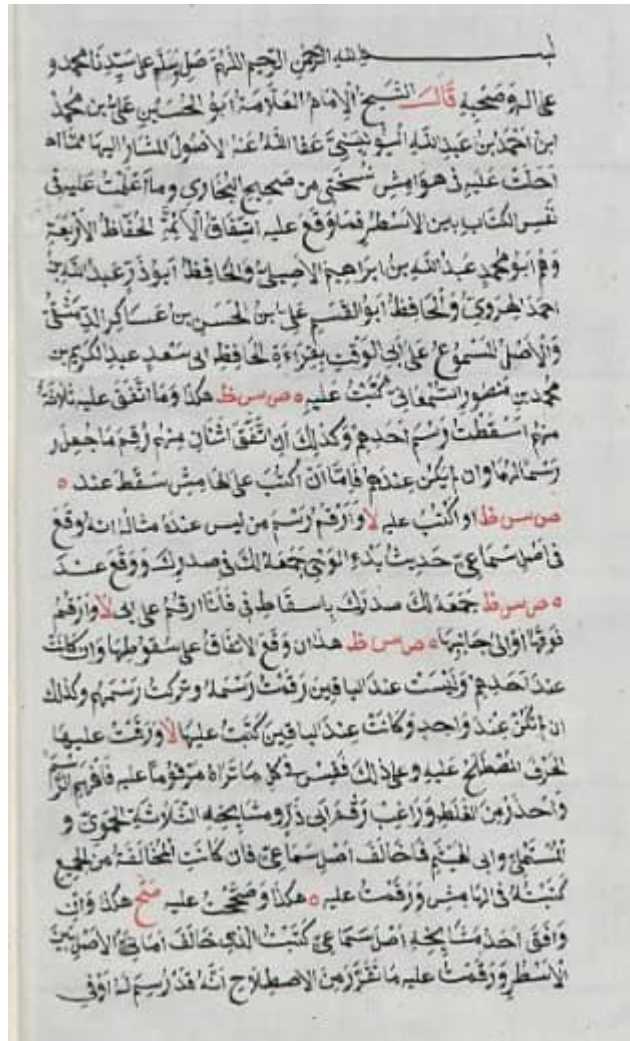 بسم الله الرحمن الرحيم اللهم صل وسلم على سيدنا محمد و
على اله وصحبه قال الشيخ الإمام العلامة ابو الحسين علي بن محمد
ابن احمد بن عبد الله اليونيني عفا الله عنه الاصول المشار اليها مما
احلت عليه في هوامش نسختي من صحيح البخاري وما أعلمت عليه في
نفس الكتاب بين الاسطر فما وقع عليه اتفاق الأئمة الحفاظ الأربعة
وهم ابو محمد عبد الله بن ابراهيم الاصيلي والحافظ أبو ذر عبد الله بن
احمد الهروي والحافظ ابو القسم علي بن الحسن بن عساكر الدمشقي
والاصل المسموع على ابي الوقت بقراءة الحافظ ابي سعد عبد الكريم بن
محمد بن منصور السمعاني كتبت عليه ه ص س ظ هكذا وما اتفق عليه ثلاثة
منهم اسقطت رسم احدهم وكذلك ان اتفق اثنان منهم رقم ما جعل
رسما لهما وان لم يكن عندهم فاما ان اكتب على الهامش سقط عند ه
ص س ظ او اكتب عليه لا وارقم رسم من ليس عنده مثاله انه وقع
في اصل سماعي حديث بدء الوحي جمعه لك في صدرك ووقع عند
ه ص س ظ جمعه لك صدرك باسقاط في فأنا ارقم على في لا وارقم
فوقها او الى جانبها ه ص س ظ هذا ان وقع الاتفاق على سقوطها وان كانت
عند احدهم وليست عند الباقين رقمت رسمه وتركت رسمهم وكذلك
ان لم تكن عند واحد وكانت عند الباقين كتبت عليها لا ورقمت عليها
الحرف المصطلح عليه وعلى ذلك فقس في كل ما تراه مرقوما عليه فافهم الرسم
واحذر من الغلط وراغب رقم ابي ذر ومشايخه الثلاثة الحموي و
المستملي وابي الهيثم فما خالف اصل سماعي فان كانت المخالفة من الجميع
كتبته في الهامش ورقمت عليه ه هكذا وصححت عليه صح هكذا وان
وافق احد مشايخه اصل سماعي كتبت الذي خالف اما في الأصل بين
الأسطر ورقمت عليه ما تقرر من الاصطلاح انه قد رسم له او في